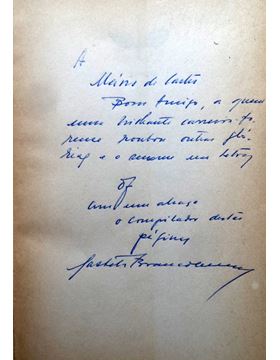 A
de Castro
Bom Amigo, a quem
uma brilhante carreira fo-
rense roubou outras gló-
rias e o amor das letras
of
com um abraço
o compilador destas
páginas
Castelo Branco